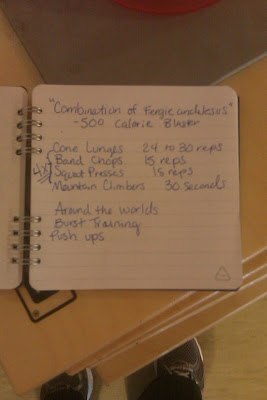 "Combination of Fergie and Jesus"
-500 Calorie Blaster
Cone Lunges 24 to 30 reps
Band Chops 15 reps
4x Squat Presses 15 reps
Mountain Climbers 30 seconds
Around the worlds
Burst Training
Push ups